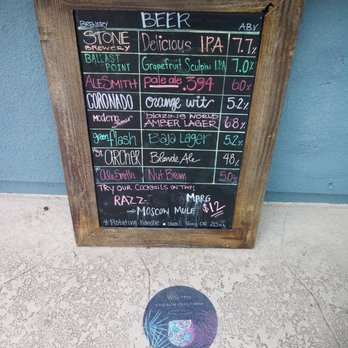 BREWERY BEER ABV
STONE BREWERY Delicious IPA 7.7%
BALLAST POINT Grapefruit Sculpin IPA 7.0%
ALESMITH pale ale .394 6.0
CORONADO orange wit 5.2
modern blazing WORLD AMBER LAGER 6.8%
green flash Baja Lager 5.2%
ARCHER Blonde Ale 4.8%
AleSmith Nut Brown 5.0%
TRY OUR COCKTAILS ON TAP!
RAZZ- MARG
→ MOSCOW MULE $12
* Rotating handle